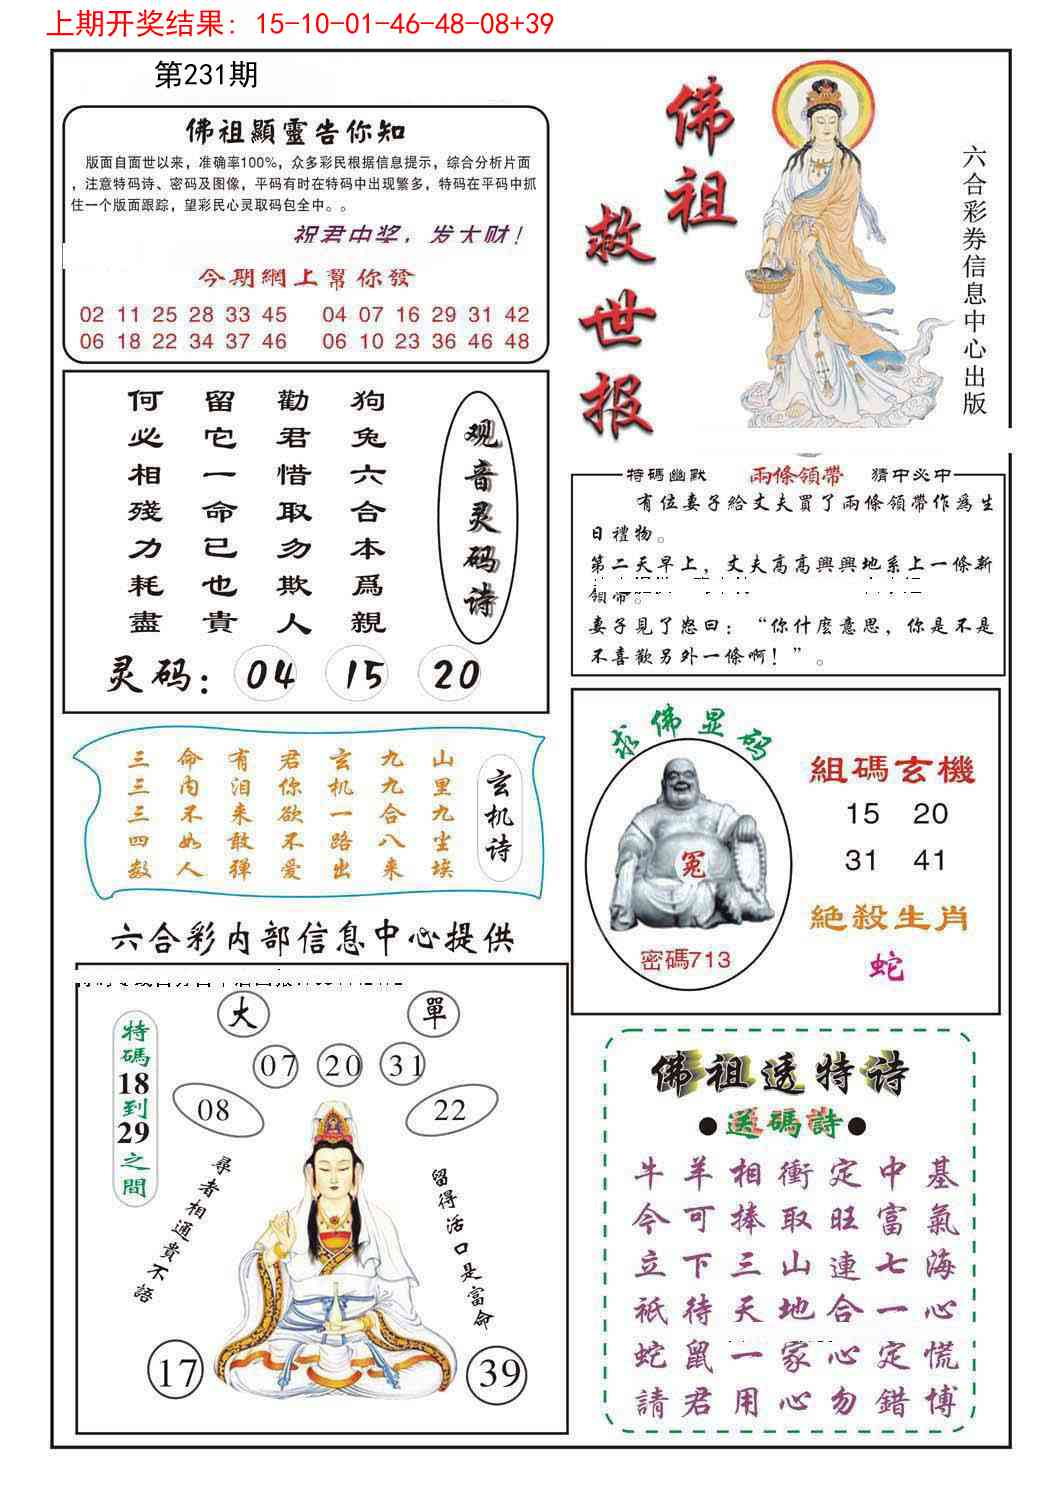 上期开奖结果：15-10-01-46-48-08+39
第231期
佛祖顯靈告你知
版面自面世以来，准确率100%，众多彩民根据信息提示，综合分析片面
，注意特码诗、密码及图像，平码有时在特码中出现繁多，特码在平码中抓
住一个版面跟踪，望彩民心灵取码包全中。。
祝君中奖，发大财！
今期網上幫你發
02 11 25 28 33 45 04 07 16 29 31 42
06 18 22 34 37 46 06 10 23 36 46 48
佛祖
救世报
六合彩券信息中心出版
观音灵码诗
狗兔六合本爲親
勸君惜取勿欺人
留它一命已也貴
何必相殘力耗盡
灵码：04 15 20
特碼幽默 兩條領帶 猜中必中
有位妻子給丈夫買了兩條領帶作爲生
日禮物。
第二天早上，丈夫高高興興地系上一條新
領帶。
妻子見了怒曰：“你什麼意思，你是不是
不喜歡另外一條啊！”。
玄机诗
山里九尘埃
九九合八来
玄机一路出
君你欲不爱
有泪来敢弹
命内不如人
三三三四数
求佛显码
冤
密碼713
組碼玄機
15 20
31 41
絕殺生肖
蛇
六合彩内部信息中心提供
大 單
特碼18到29之間
07 20 31
08 22
尋者相通貴不語
留得活口是富命
17 39
佛祖透特诗
●送碼詩●
牛羊相衝定中基
今可捧取旺富氣
立下三山連七海
祇待天地合一心
蛇鼠一家心定慌
請君用心勿錯博